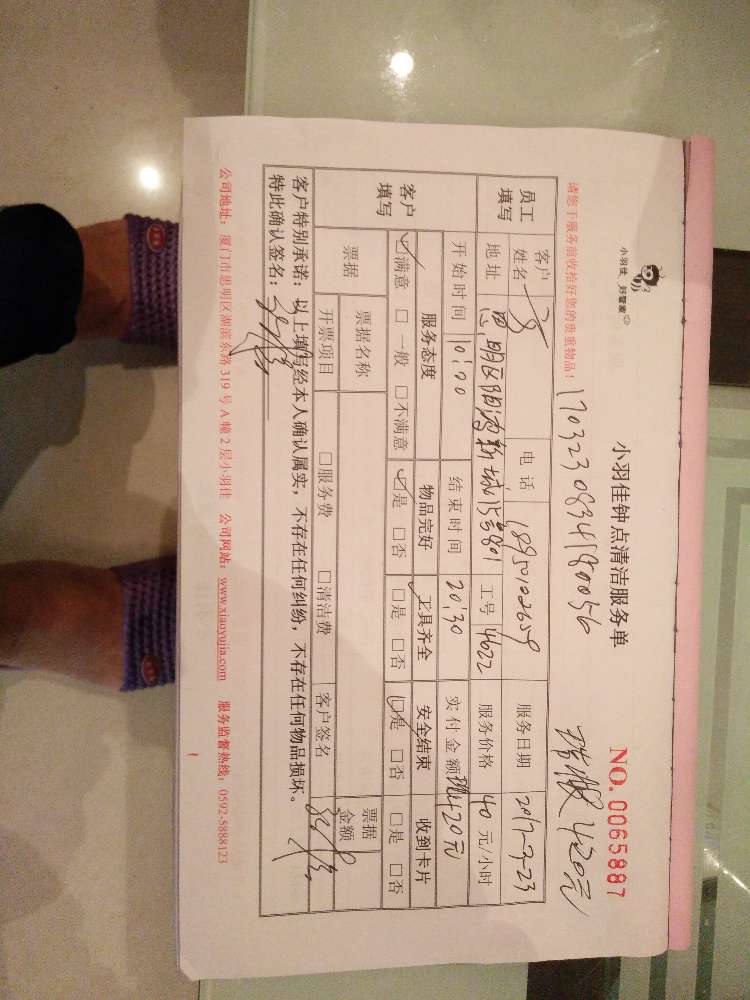 小羽佳 好智家
小羽佳钟点清洁服务单
NO. 0065887
17032308341180056
现做420元
请您于服务前收拾好您的贵重物品！
员工填写
客户姓名
电话 18950102659
服务日期 2017-3-23
地址 思明区阳鸿新城
工号 4622
服务价格 40元/小时
开始时间 10:00
结束时间 20:30
实付金额 现420元
客户填写
服务态度
物品完好
工具齐全
安全结束
收到卡片
☑满意 □一般 □不满意
☑是 □否
□是 □否
☑是 □否
□是 □否
票据
票据名称
票据金额
开票项目
□服务费
□清洁费
客户签名
客户特别承诺：以上填写经本人确认属实，不存在任何纠纷，不存在任何物品损坏。
特此确认签名：
公司地址：厦门市思明区湖滨东路319号A幢2层小羽佳 公司网站：www.xiaoyujia.com 服务监督热线：0592-5888123